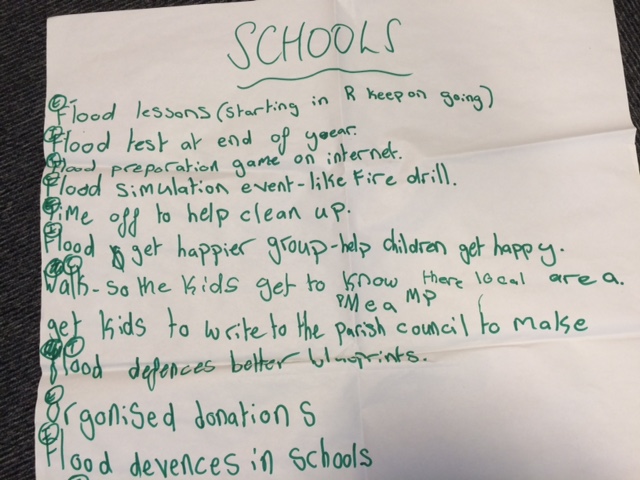 SCHOOLS
Flood lessons (starting in R keep on going)
Flood test at end of year.
Flood preparation game on internet.
Flood simulation event-like Fire drill.
Time off to help clean up.
Flood get happier group-help children get happy.
Walk-so the kids get to know there local area.
PM e a MP
get kids to write to the parish council to make
Flood defences better bluoprints.
Organised donations
Flood devences in schools